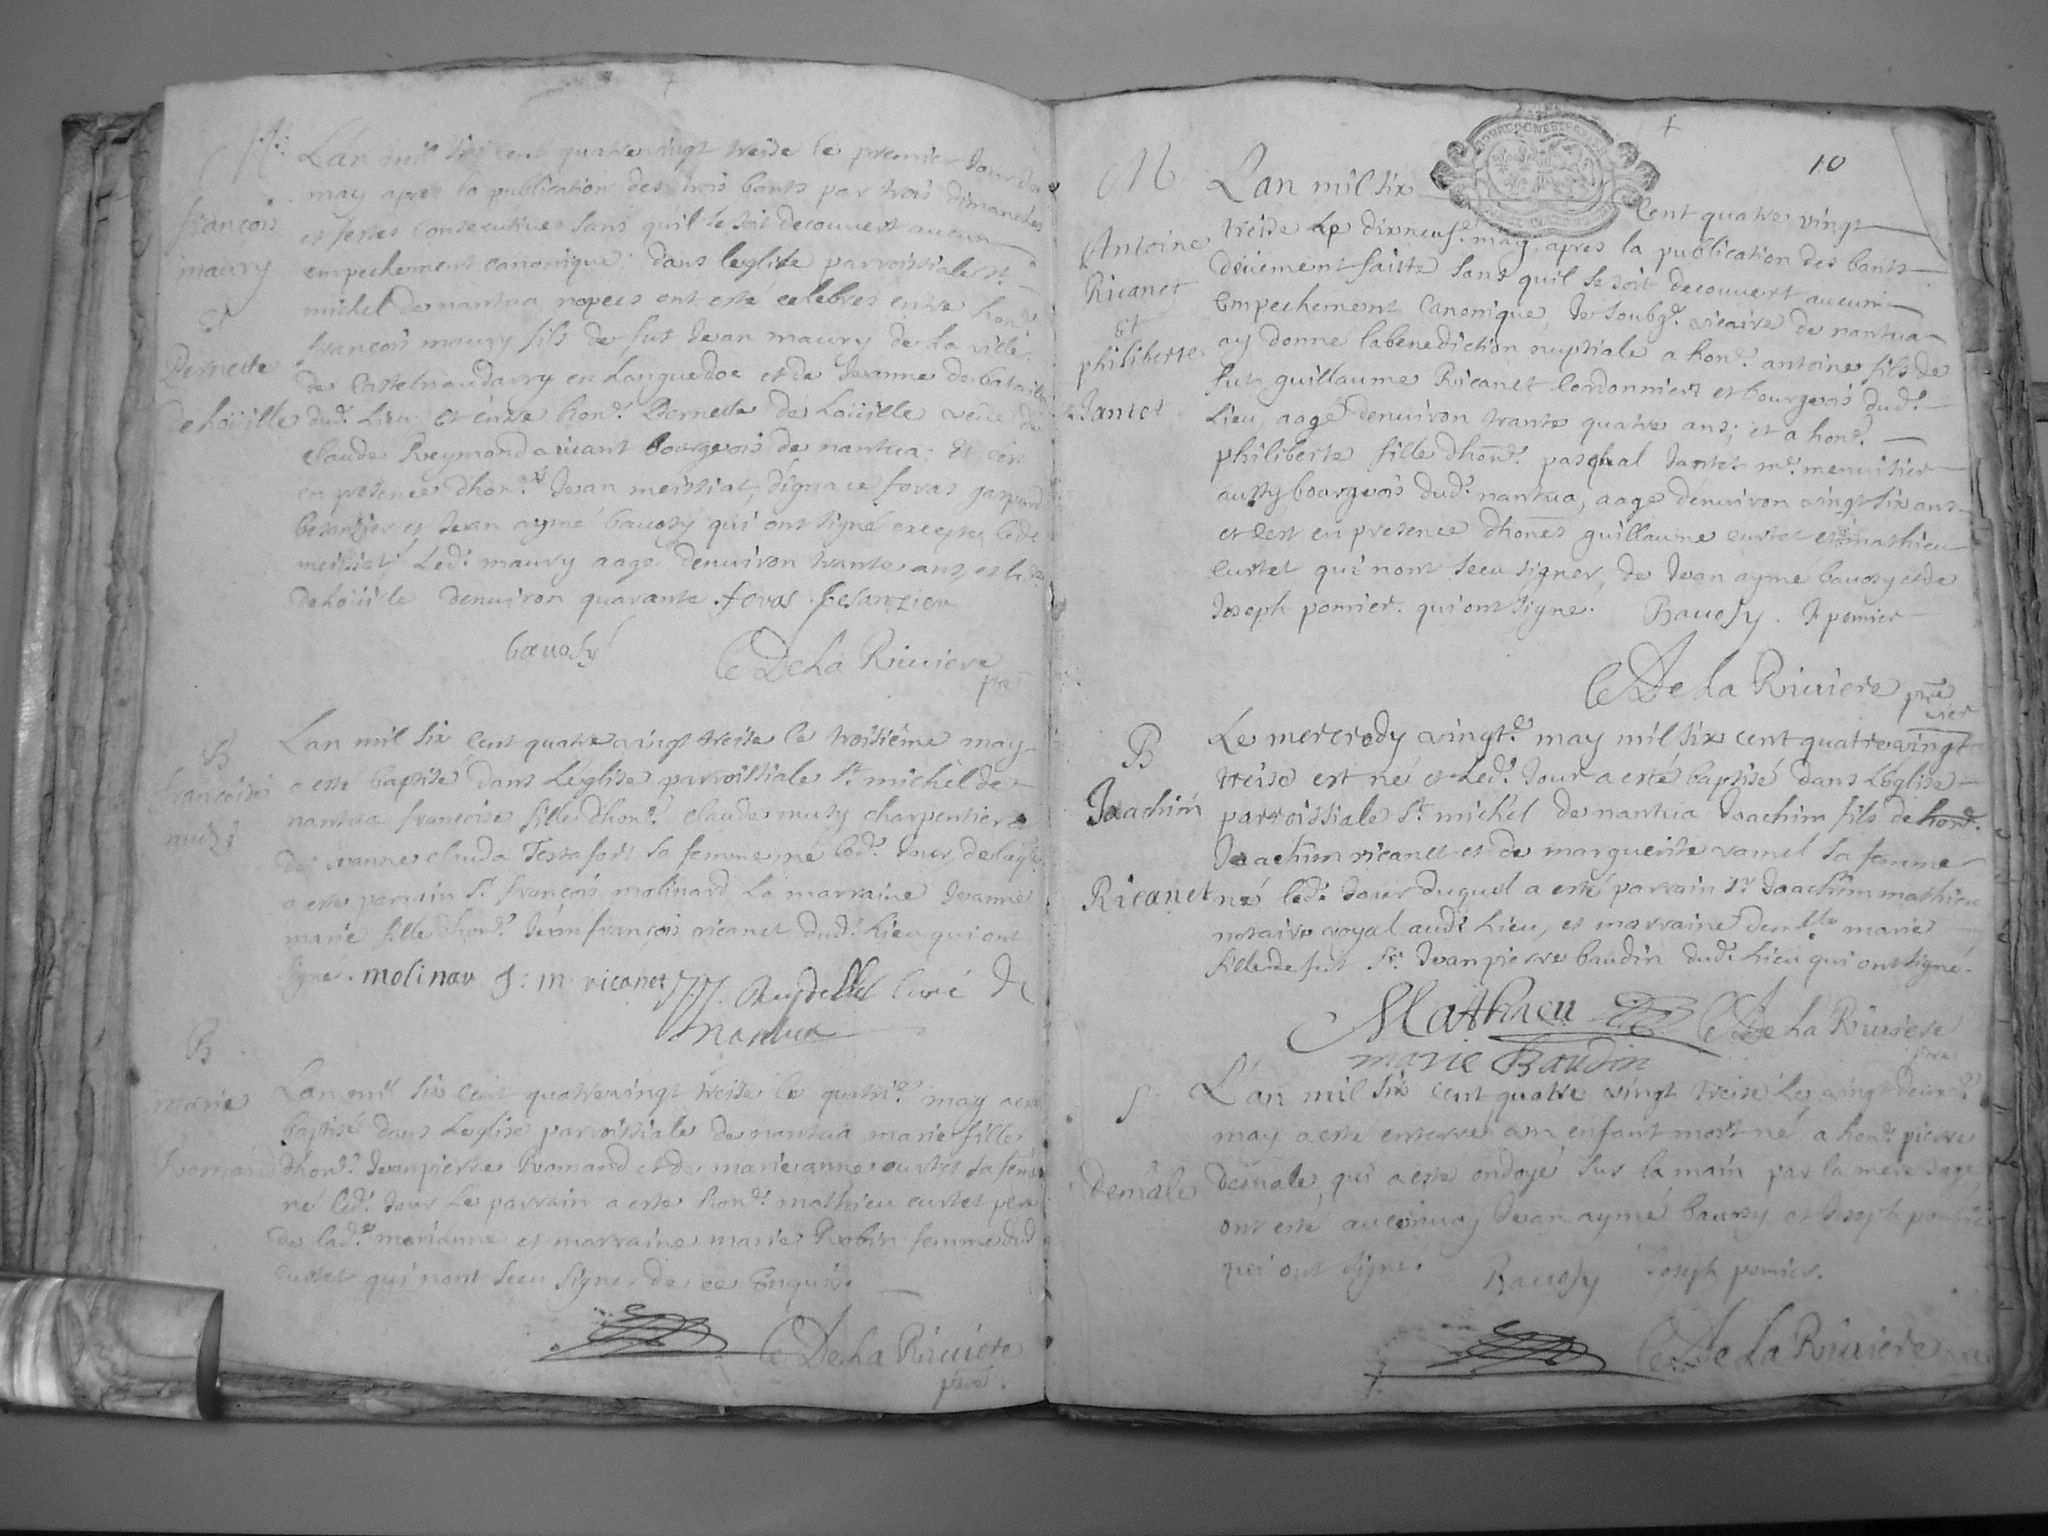 M
françois
maury
et
Pernette
Dehoüille
L'an mil six cent quatre vingt treise le premier Jour de
may apres la publication des trois bants par trois dimanches
et festes consecutives sans quil se soit decouvert aucun
empechement canonique dans leglise parroissiale st.
michel de nantua nopces ont esté celebres entre hon.e
françois maury fils de fut Jean maury de la ville
de Castelnaudarry en Languedoc et de Jeanne de bataille
dud.t Lieu et entre hon.e Pernette de hoüille veüe de
claude Reymond vivant bourgeois de nantua. Et cest
en presence dhon.es Jean meissiat, Ignace fevas gaspard
besanzier et Jean aymé bavosy qui ont signé excepte led.t
meissiat. Led.t maury aagé denviron trante ans, et la
dehoüille denviron quarante. fevas besanzier
bavosy
C De La Riuiere
ptre
B
francoise
musy
Lan mil six cent quatre vingt treise le troisiéme may
a esté baptisé dans Léglise parroissiale st. michel de
nantua françoise fille dhon.e claude musy charpentier et
de Jeanne cluda Terrafort sa femme, né led.t Jour, de laq.lle
a este parrain Sr. françois molinard La marraine Jeanne
marie fille dhon.e Jean françois ricanet dud.t Lieu qui ont
signé. molinar J: m ricanet Reydellet Curé de
Nantua
B
Marie
Romand
Lan mil six cent quatre vingt treise le quatri.e may a este
baptisé dans Leglise parroissiale de nantua marie fille
dhon.e Jean pierre Romand et de marie anne curtet sa feme
né led.t Jour Le parrain a este hon.e mathieu curtet pere
de lad.te marianne et marraine marie Robin femme dud
curtet qui nont sceu signer de ce Enquis.
C De La Riuiere
ptre.
10
M
Antoine
Ricanet
Et
philiberte
Jantet
L'an mil six cent quatre vingt
treise Le dixneuf.e may, apres la publication des bants
düement faitte sans quil se soit decouvert aucun
Empechement Canonique, Je soubz.e vicaire de nantua
ay donné la benediction nuptiale a hon.e antoine fils de
fut guillaume Ricanet Cordonnier et bourgeois dud.t
Lieu, aagé denviron trante quatre ans; et a hon.e
philiberte fille dhon.e pasqual Jantet m.e menuisier
aussy bourgeois dud.t nantua, aagé denviron vingt six ans
et cest en presence dhones guillaume curtet et mathieu
Curtet qui nont sceu signer, de Jean aymé bavosy et de
Joseph pomier. qui ont signé. Bavosy. J pomier
C De la Riuiere ptre
vier
B
Joachim
Ricanet
Le mercredy vingt.e may mil six cent quatre vingt
treise est né et led.t Jour a esté baptisé dans Léglise
parroissiale st. michel de nantua Joachim fils de hon.e
Joachim ricanet et de marguerite ramel sa femme
né led.t Jour duquel a esté parrain Sr Joachim mathieu
notaire royal aud.t Lieu, et marraine dem.lle marie
fille de fut Sr. Jean pierre baudin dud.t Lieu qui ont signé.
Mathieu C De La Riuiere
marie Baudin ptre
S
demâle
L'an mil six cent quatre vingt treise Le vingt deux.e
may a esté enterré un enfant mort né a hon.e pierre
demale, qui a esté ondoyé sur la main par la mere sage,
ont esté au convoy Jean aymé bavosy et Joseph pomier
qui ont signé. Bavosy Joseph pomier.
C De La Riuiere